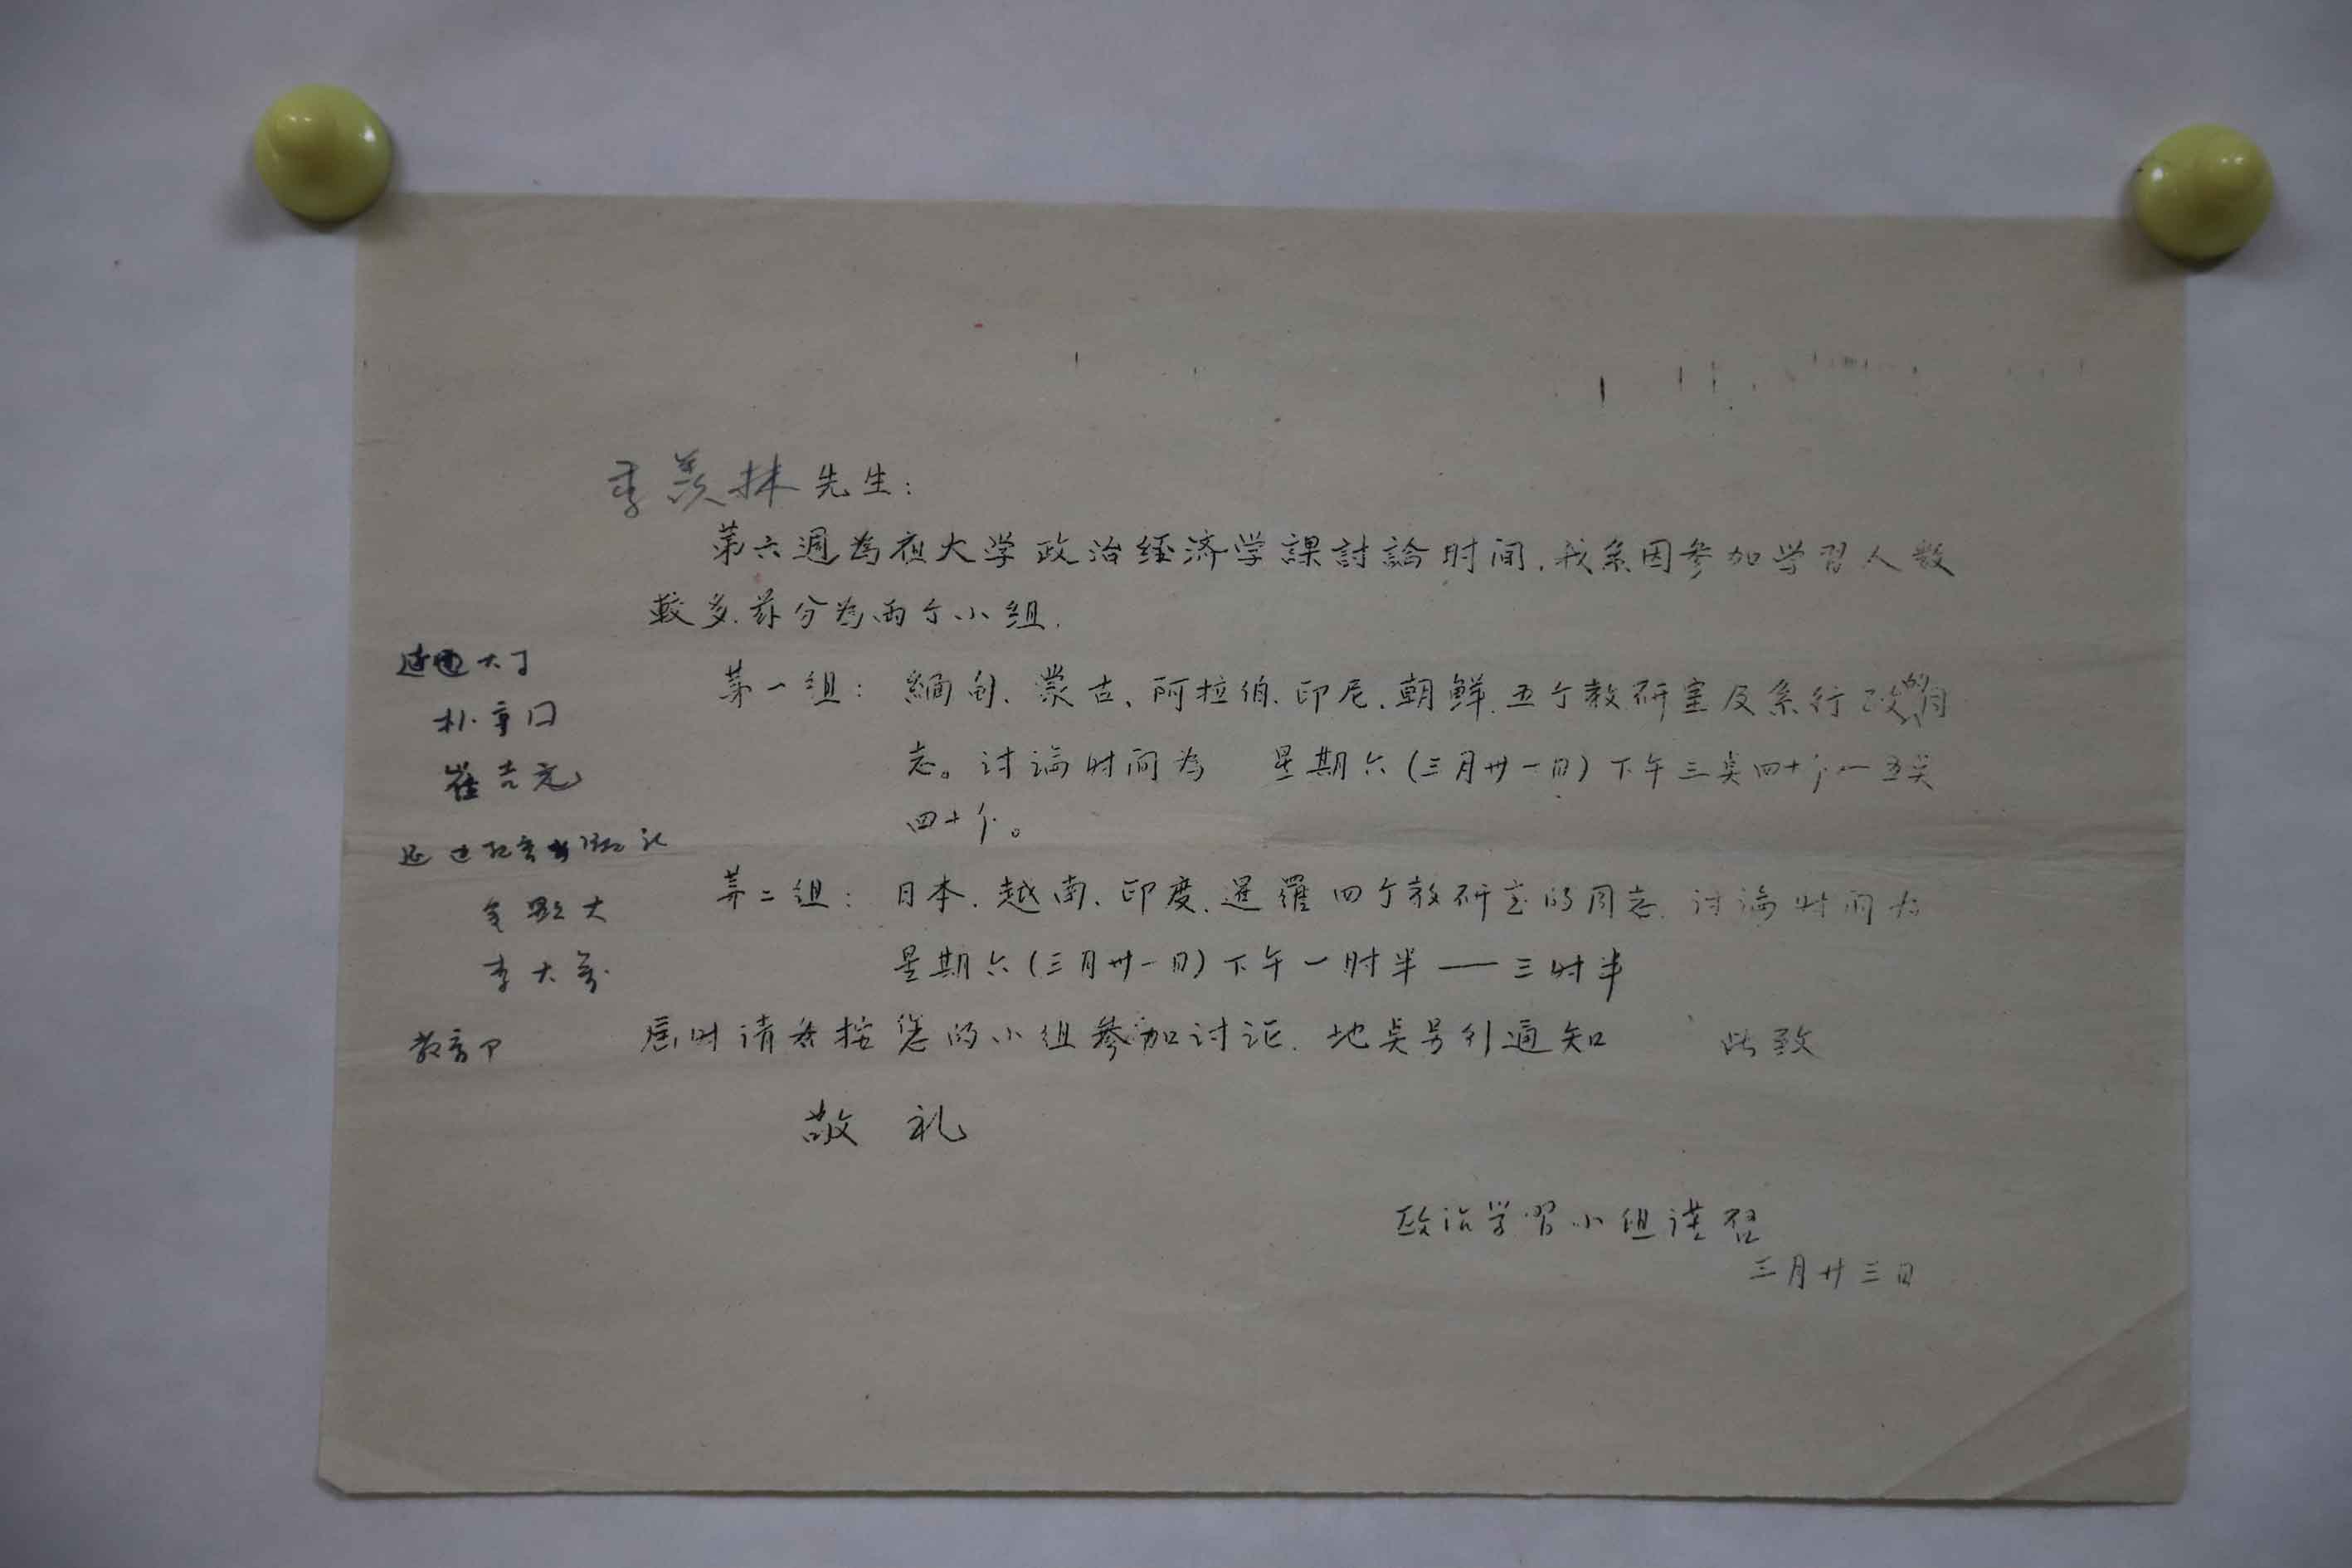 季羡林先生：
第六週為夜大学政治経济学課討論时间，我系因参加学習人数
較多，故分为两个小组.
第一组：緬甸、蒙古、阿拉伯、印尼、朝鲜、五个教研室及系行政的同
志。讨論时间为 星期六(三月卅一日)下午三点四十分—五点
四十分。
第二组：日本、越南、印度、暹羅四个教研室的同志，讨論时间为
星期六(三月卅一日)下午一时半——三时半
届时请您按您的小组参加讨论．地点另行通知 此致
敬礼
政治学習小组谨启
三月廿三日
延边大丁
崔吉元
延边
李大
教育